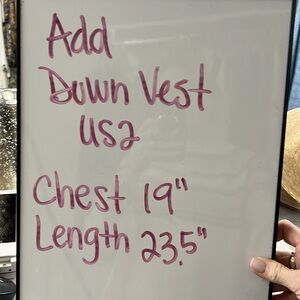 Add
Down Vest
USA
Chest 19"
Length 23.5"